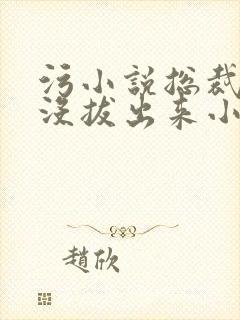 污小说总裁
没拔出来小
趙欣